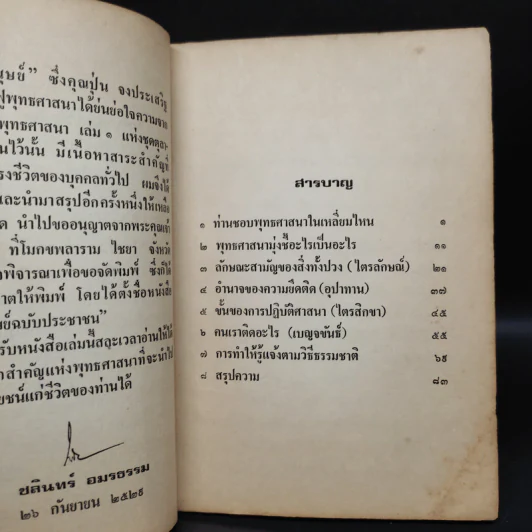 นุษย์” ซึ่งคุณปุ่น จงประเสริฐ
ฟูพุทธศาสนาได้ย่นย่อใจความจาก
พุทธศาสนา เล่ม ๑ แห่งชุดตุลา-
นไว้นั้น มีเนื้อหาสาระสำคัญที่
รงชีวิตของบุคคลทั่วไป ผมจึงได้
และนำมาสรุปอีกครั้งหนึ่งให้เหลือ
ด นำไปขออนุญาตจากพระคุณเจ้า
ที่โมกขพลาราม ไชยา จังหวัด
พิจารณาเพื่อขอจัดพิมพ์ ซึ่งก็ได้
าตให้พิมพ์ โดยได้ตั้งชื่อหนังสือ
ษย์ฉบับประชาชน”
รับหนังสือเล่มนี้สละเวลาอ่านให้ได้
สำคัญแห่งพุทธศาสนาที่จะนำไป
ยชน์แก่ชีวิตของท่านได้
ชลินทร์ อมรธรรม
๒๖ กันยายน ๒๕๒๙
สารบาญ
๑ ท่านชอบพุทธศาสนาในเหลี่ยมไหน ๑
๒ พุทธศาสนามุ่งชี้อะไรเป็นอะไร ๑๑
๓ ลักษณะสามัญของสิ่งทั้งปวง (ไตรลักษณ์) ๒๑
๔ อำนาจของความยึดติด (อุปาทาน) ๓๗
๕ ขั้นของการปฏิบัติศาสนา (ไตรสิกขา) ๔๕
๖ คนเราติดอะไร (เบญจขันธ์) ๕๕
๗ การทำให้รู้แจ้งตามวิธีธรรมชาติ ๖๙
๘ สรุปความ ๘๓